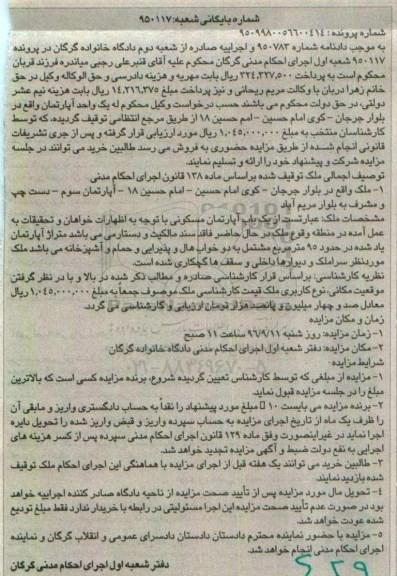 شماره بایگانی شعبه: ۹۵۰۱۱۷
شماره پرونده: ۹۵۰۹۹۸۰۰۵۶۶۰۰۴۱۴
به موجب دادنامه شماره ۹۵۰۷۸۳ و اجراییه صادره از شعبه دوم دادگاه خانواده گرگان در پرونده
۹۵۰۱۱۷ شعبه اول اجرای احکام مدنی گرگان محکوم علیه آقای قنبرعلی رجبی میاندره فرزند قربان
محکوم است به پرداخت ۳۲۴,۳۲۷,۵۰۰ ریال بابت مهریه و هزینه دادرسی و حق الوکاله وکیل در حق
خانم زهرا دربان با وکالت مریم ریحانی و نیز پرداخت مبلغ ۱۴,۲۱۶,۳۷۵ ریال بابت هزینه نیم عشر
دولتی، در حق دولت محکوم می باشند حسب درخواست وکیل محکوم له یک واحد آپارتمان واقع در
بلوار جرجان - کوی امام حسین - امام حسین ۱۸ از طریق مرجع انتظامی توقیف گردیده، که توسط
کارشناسان منتخب به مبلغ ۱,۰۴۵,۰۰۰,۰۰۰ ریال مورد ارزیابی قرار گرفته و پس از جری تشریفات
قانونی انجام شده از طریق مزایده حضوری به فروش می رسد طالبین خرید می توانند در جلسه
مزایده شرکت و پیشنهاد خود را ارائه و تسلیم نمایند.
توصیف اجمالی ملک توقیف شده براساس ماده ۱۳۸ قانون اجرای احکام مدنی
۱- ملک واقع در بلوار جرجان - کوی امام حسین - امام حسین ۱۸ - آپارتمان سوم - دست چپ
و مشرف به بلوار مریم آباد
مشخصات ملک: عبارتست از یک باب آپارتمان مسکونی با توجه به اظهارات خواهان و تحقیقات به
عمل آمده در منطقه وقوع ملک در حال حاضر فاقد سند مالکیت و دستارمی می باشد متراژ آپارتمان
یاد شده در حدود ۹۵ مترمربع مشتمل به دو خواب هال و پذیرایی و حمام و آشپزخانه می باشد ملک
موردنظر سرامک و دیوارها داخلی و سقف ها گچکاری شده است.
نظریه کارشناسی: براساس قرار کارشناسی صادره و مطالب ذکر شده در بالا و با در نظر گرفتن
موقعیت مکانی، نوع کاربری ملک قیمت کارشناسی ملک موصوف جمعاً به مبلغ ۱,۰۴۵,۰۰۰,۰۰۰ ریال
معادل صد و چهار میلیون و پانصد هزار تومان ارزیابی و کارشناسی می گردد.
زمان و مکان مزایده
۱- زمان مزایده: روز شنبه ۹۶/۹/۱۱ ساعت ۱۱ صبح
۲- مکان مزایده: دفتر شعبه اول اجرای احکام مدنی دادگاه خانواده گرگان
شرایط مزایده:
۱- مزایده از مبلغی که توسط کارشناس تعیین گردیده شروع، برنده مزایده کسی است که بالاترین
مبلغ را در جلسه مزایده قبول نماید.
۲- برنده مزایده می بایست ۱۰ مبلغ مورد پیشنهاد را نقداً به حساب دادگستری واریز و مابقی آن
را ظرف یک ماه از تاریخ اجرای مزایده به حساب سپرده واریز و قبض واریز شده را تحویل دایره
اجرا نماید در غیر اینصورت وفق ماده ۱۲۹ قانون اجرای احکام مدنی سپرده پس از کسر هزینه های
اجرایی به نفع دولت ضبط و آگهی مزایده تجدید خواهد شد.
۳- طالبین خرید می توانند یک هفته قبل از اجرای مزایده با هماهنگی این اجرای احکام ملک توقیف
شده بازدید نمایند.
۴- تحویل مال مورد مزایده پس از تأیید صحت مزایده از ناحیه دادگاه صادر کننده اجراییه خواهد
بود در صورت عدم تأیید صحت مزایده این اجرا مسئولیتی در رابطه با خریدار ندارد فقط مبلغ تودیع
شده عودت خواهد شد.
۵- مزایده با حضور نماینده محترم دادستان دادستان دادسرای عمومی و انقلاب گرگان و نماینده
اجرای احکام مدنی انجام خواهد شد.
دفتر شعبه اول اجرای احکام مدنی گرگان